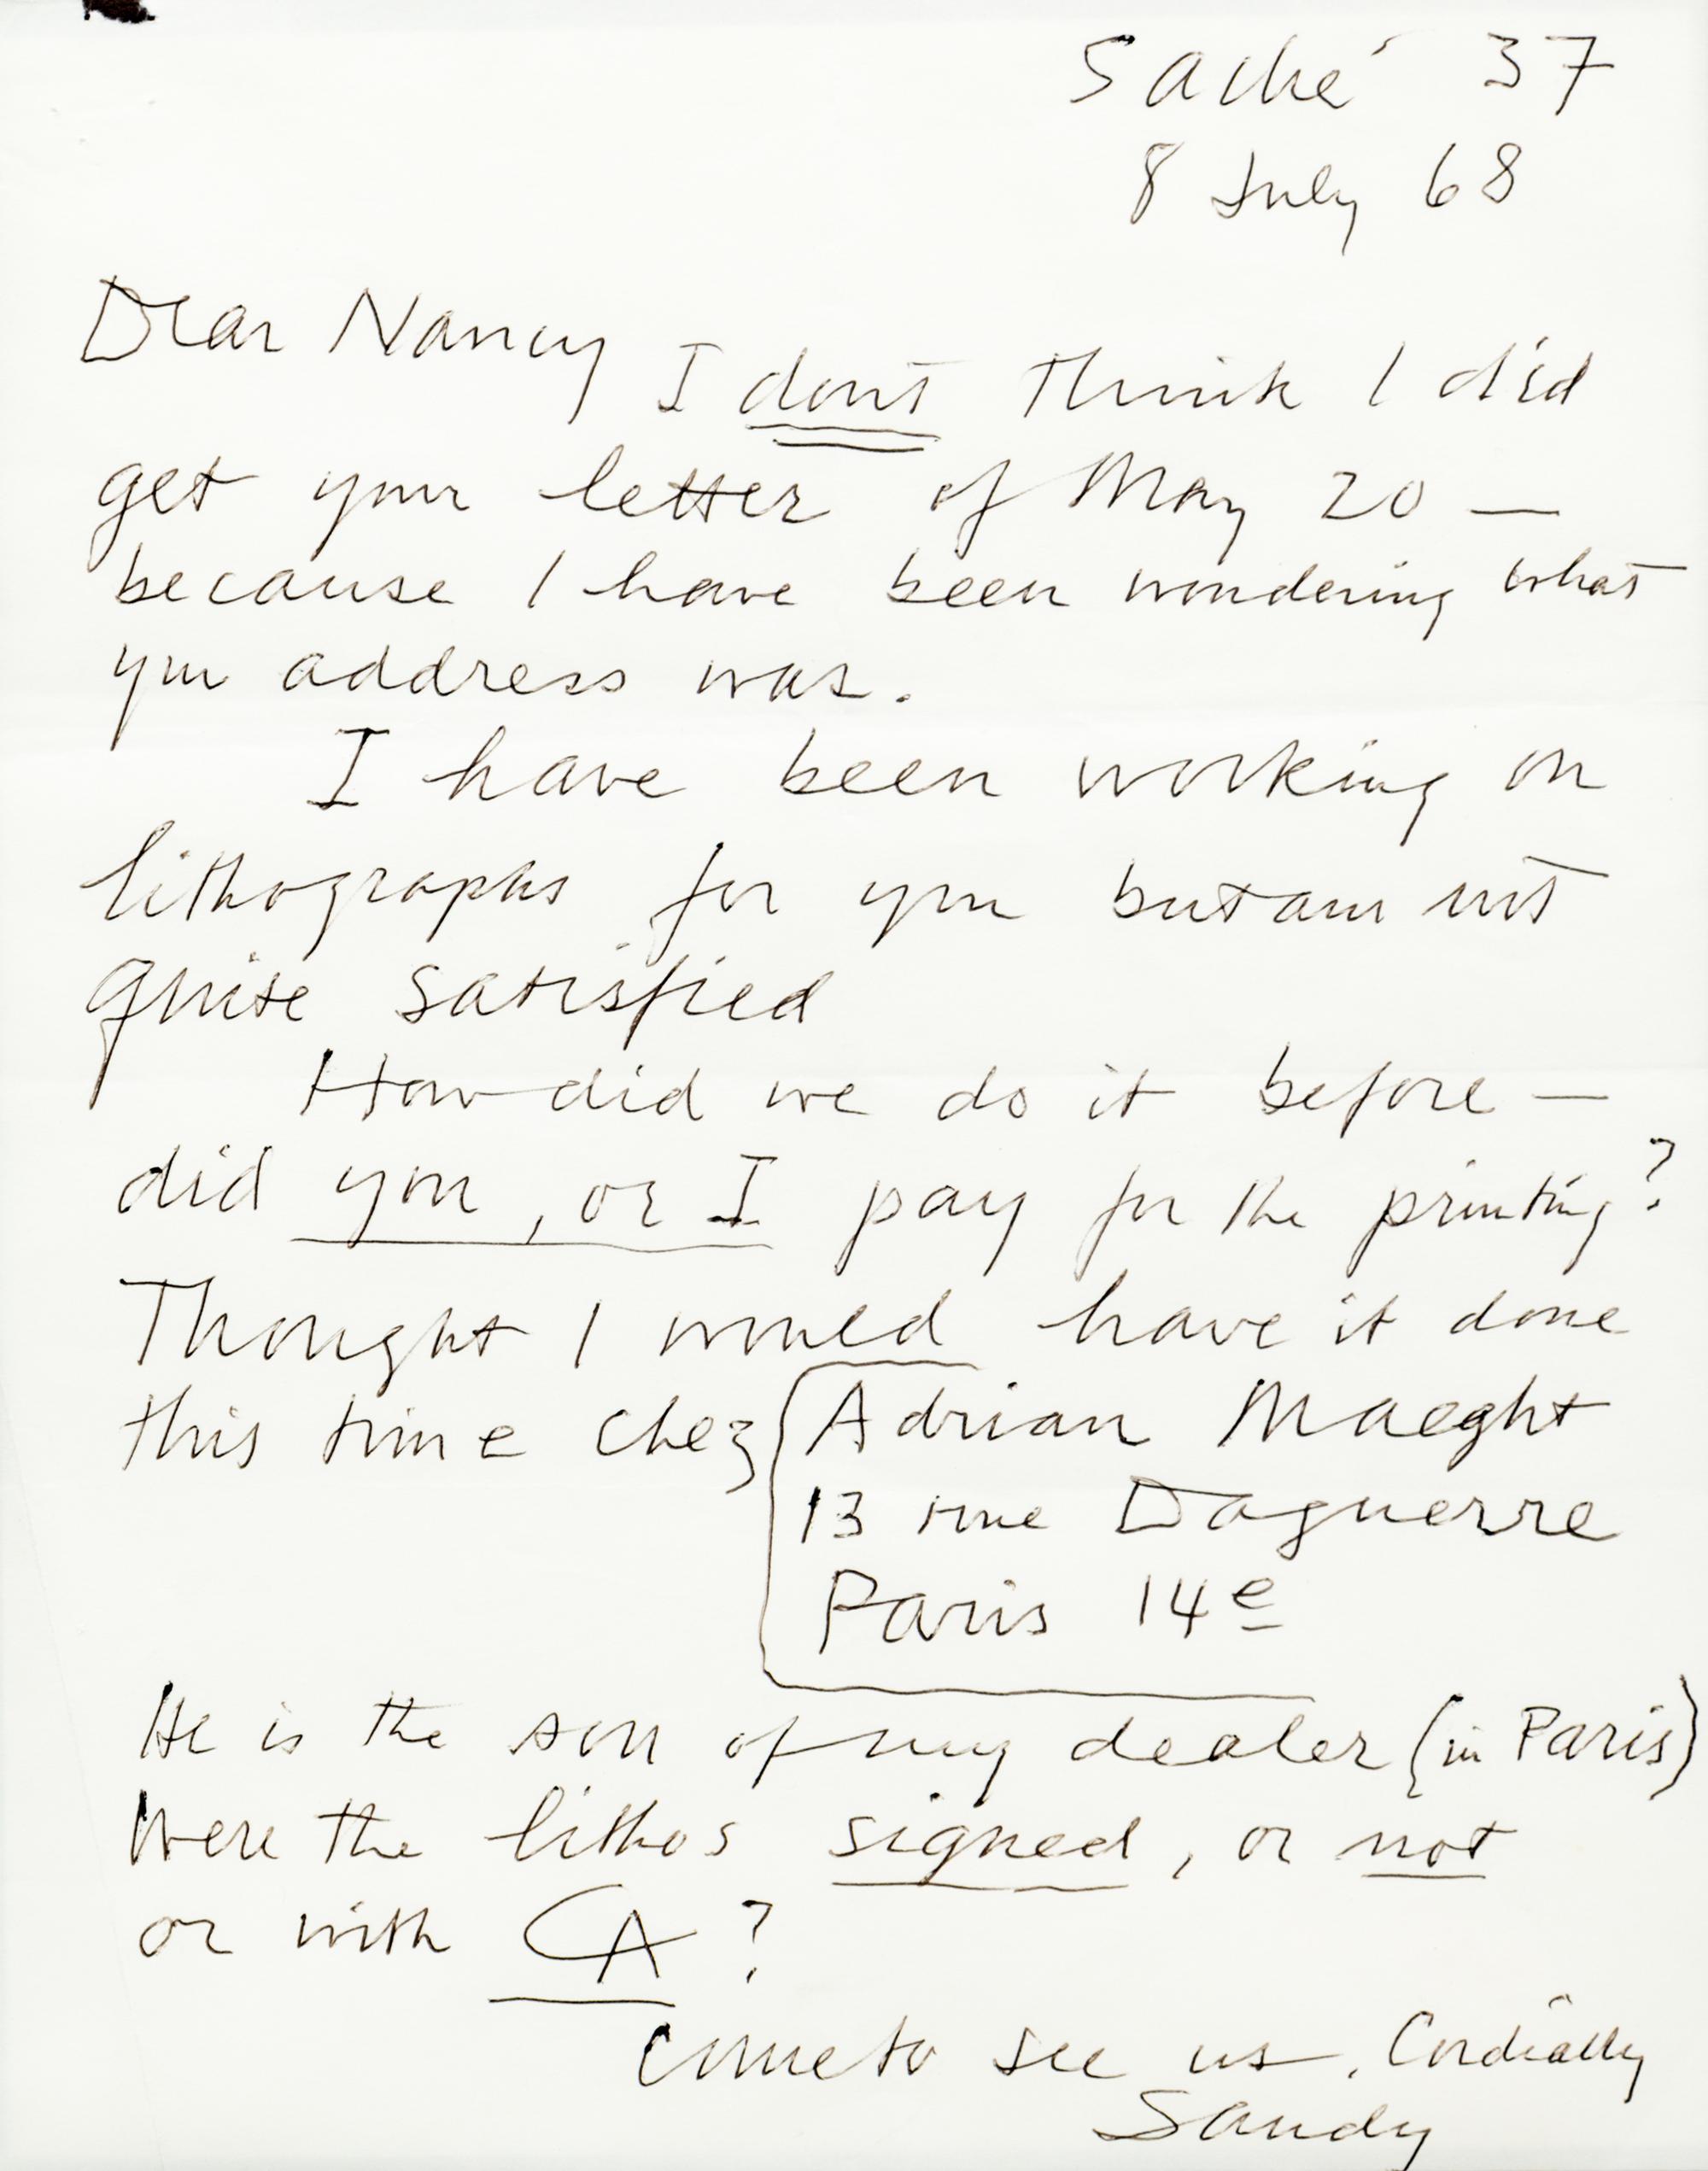 Saché 37
8 July 68
Dear Nancy
I dont think I did
get your letter of May 20 —
because I have been wondering what
you address was.
I have been working on
lithographs for you but am not
quite satisfied
How did we do it before —
did you, or I pay for the printing?
Thought I would have it done
this time chez Adrian Maeght
13 rue Daguerre
Paris 14e
He is the son of my dealer (in Paris)
Were the lithos signed, or not
or with CA?
Come to see us. Cordially
Sandy